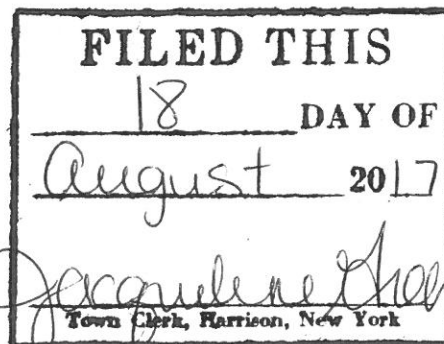 FILED THIS
18 DAY OF
August 2017
Jacqueline
Town Clerk, Harrison, New York